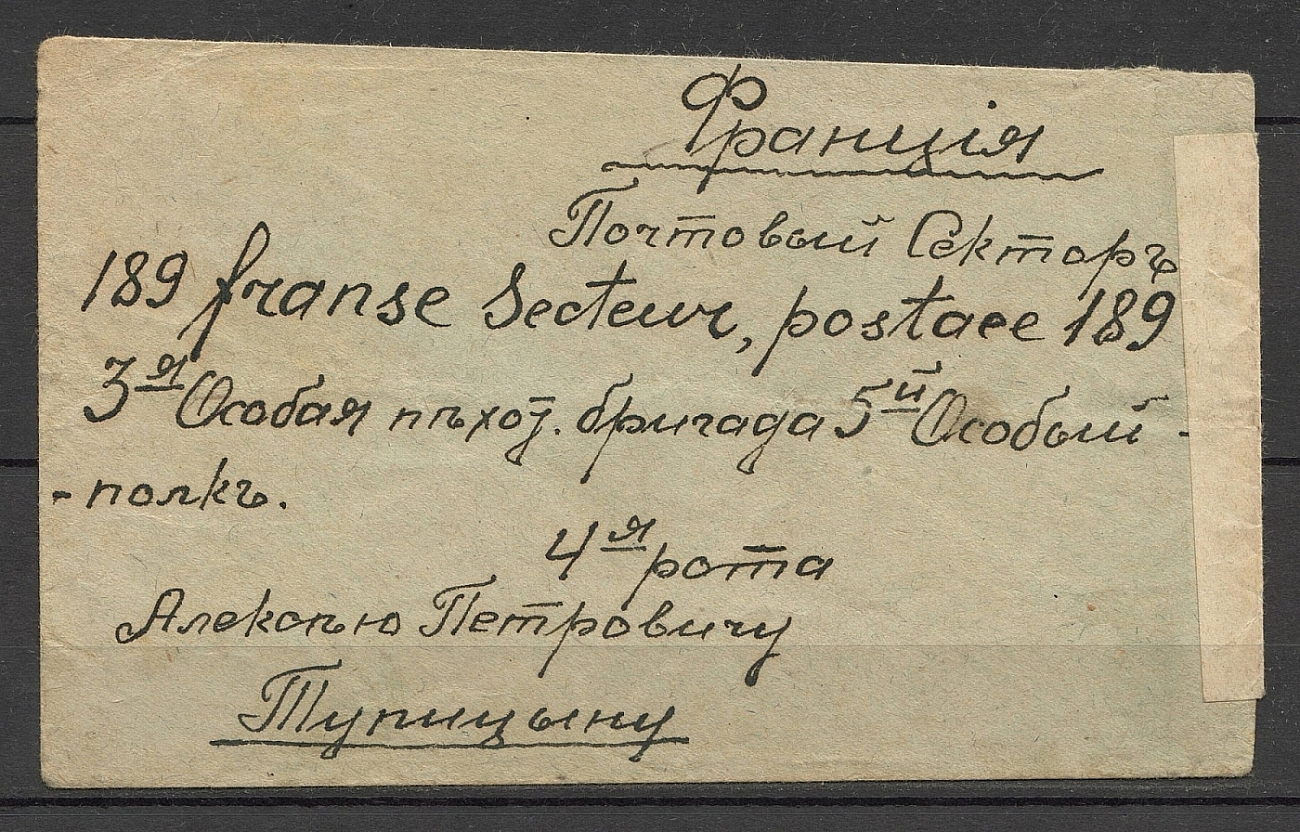 Франція
Почтовый Секторъ
189 franse Secteur, postaee 189
3ᵃя Особая пѣхот. бригада 5ый Особый -
- полкъ.
4ая рота
Алексѣю Петровичу
Тупицыну